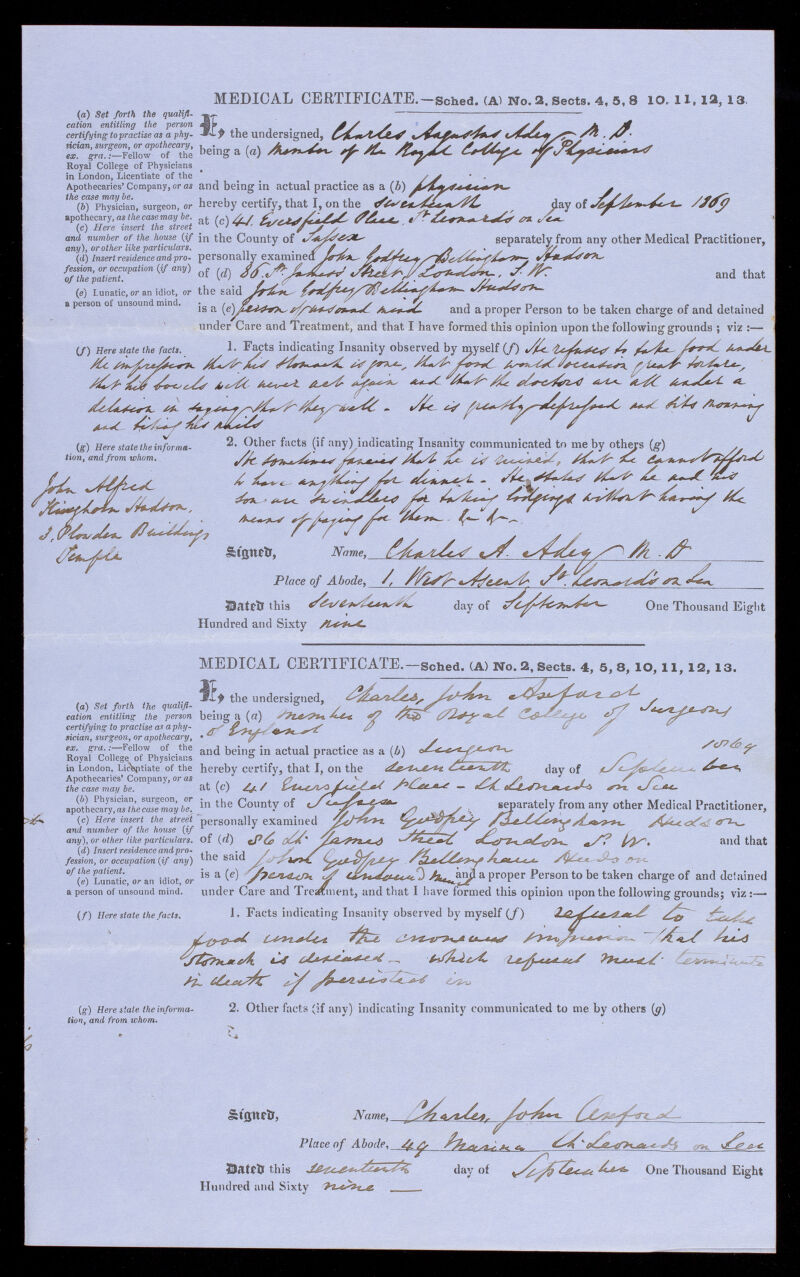 MEDICAL CERTIFICATE.—Sched. (A) No. 2, Sects. 4, 5, 8 10. 11, 12, 13.
(a) Set forth the qualifi-
cation entitling the person
certifying to practise as a phy-
sician, surgeon, or apothecary,
ex. gra.:—Fellow of the
Royal College of Physicians
in London, Licentiate of the
Apothecaries' Company, or as
the case may be.
(b) Physician, surgeon, or
apothecary, as the case may be.
(c) Here insert the street
and number of the house (if
any), or other like particulars.
(d) Insert residence and pro-
fession, or occupation (if any)
of the patient.
(e) Lunatic, or an idiot, or
a person of unsound mind.
I, the undersigned, Charles Augustus Adey M. D.
being a (a) Member of the Royal College of Physicians
and being in actual practice as a (b) physician
hereby certify, that I, on the seventeenth day of September 1869
at (c) 41. Eversfield Place St. Leonard's on Sea
in the County of Sussex separately from any other Medical Practitioner,
personally examined John Godfrey Bellingham Hudson
of (d) 86. St. James's Street, London. S. W. and that
the said John Godfrey Bellingham Hudson
is a (e) person of unsound mind and a proper Person to be taken charge of and detained
under Care and Treatment, and that I have formed this opinion upon the following grounds ; viz :—
(f) Here state the facts.
1. Facts indicating Insanity observed by myself (f) He refuses to take food under
the impression that his stomach is gone, that food would occasion great torture,
that his bowels will never act again and that the doctors are all under a
delusion in saying that they will - He is greatly depressed and sits moaning
and biting his nails
(g) Here state the informa-
tion, and from whom.
John Alfred
Kinghorn Hudson.
3. Plowden Buildings
Temple
2. Other facts (if any) indicating Insanity communicated to me by others (g)
He sometimes fancies that he is ruined, that he cannot afford
to have anything for dinner - He states that he and his
son are swindlers for taking lodgings without having the
means of paying for them. &c &c -
Signed, Name, Charles A. Adey M. D
Place of Abode, 1, West Ascent, St. Leonard's on Sea
Dated this Seventeenth day of September One Thousand Eight
Hundred and Sixty nine
MEDICAL CERTIFICATE.—Sched. (A) No. 2, Sects. 4, 5, 8, 10, 11, 12, 13.
(a) Set forth the qualifi-
cation entitling the person
certifying to practise as a phy-
sician, surgeon, or apothecary,
ex. gra.:—Fellow of the
Royal College of Physicians
in London, Licentiate of the
Apothecaries' Company, or as
the case may be.
(b) Physician, surgeon, or
apothecary, as the case may be.
(c) Here insert the street
and number of the house (if
any), or other like particulars.
(d) Insert residence and pro-
fession, or occupation (if any)
of the patient.
(e) Lunatic, or an idiot, or
a person of unsound mind.
I, the undersigned, Charles, John Axford
being a (a) member of the Royal College of Surgeons
of England
and being in actual practice as a (b) Surgeon 1869
hereby certify, that I, on the seventeenth day of September
at (c) 41 Eversfield Place - St Leonards on Sea
in the County of Sussex separately from any other Medical Practitioner,
personally examined John Godfrey Bellingham Hudson
of (d) 86 St. James Street London S. W. and that
the said John Godfrey Bellingham Hudson
is a (e) person of unsound mind and a proper Person to be taken charge of and detained
under Care and Treatment, and that I have formed this opinion upon the following grounds; viz :—
(f) Here state the facts.
1. Facts indicating Insanity observed by myself (f) refusal to take
food under the erroneous impression that his
stomach is diseased - which refusal must terminate
in death if persisted in
(g) Here state the informa-
tion, and from whom.
2. Other facts (if any) indicating Insanity communicated to me by others (g)
Signed, Name, Charles, John Axford
Place of Abode, 49 Marina St. Leonards on Sea
Dated this seventeenth day of September One Thousand Eight
Hundred and Sixty nine —